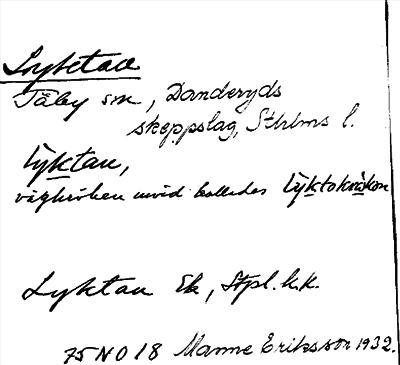 Lyktan
Täby sn, Danderyds
skeppslag, Sthlms l.
lyktan,
vägkröken invid kallades lyktokröken
Lyktan Ek, Stpl. h.k.
75 NO 18 Manne Eriksson 1932.